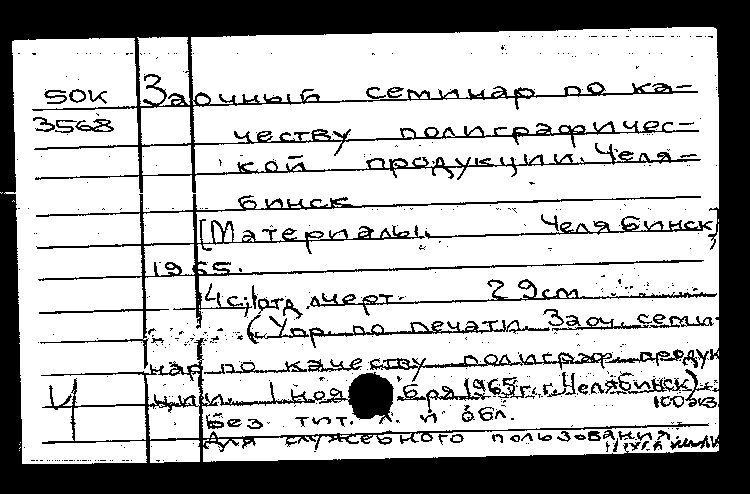 50К Заочный семинар по ка=
3568 честву полиграфичес=
кой продукции. Челя=
бинск
[Материалы. Челябинск],
1965.
14с., 1 отд. л. черт. 29cm
(Упр. по печати. Заоч. семи-
нар по качеству полиграф. продук
ции. 1 ноября 1965г. г. Челябинск).
Ч 100экз.
Без тит. л. и обл.
Для служебного пользования.